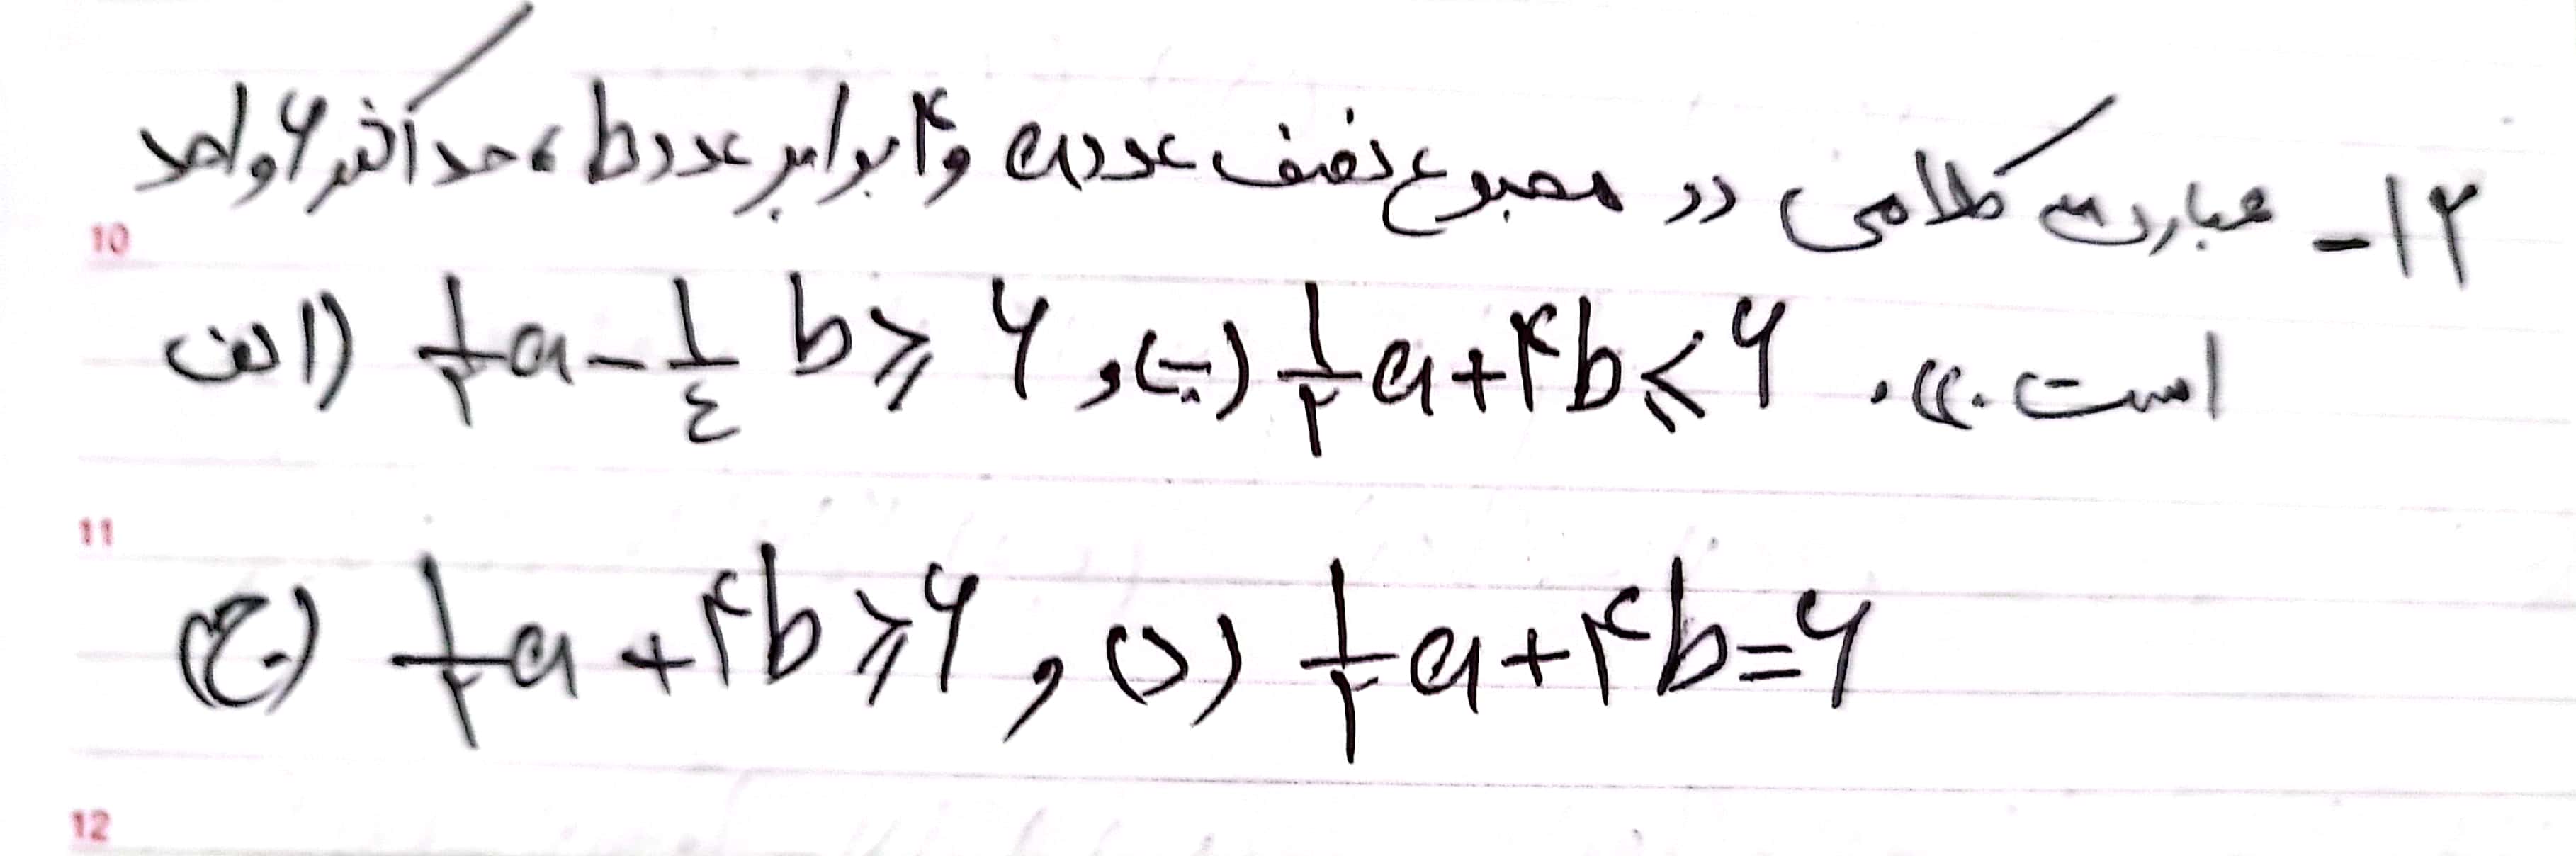 ۱۲- عبارت کلامی «مجموع نصف عدد a و ۴ برابر عدد b، حداکثر ۶ واحد
10
است.».
الف) ۱/۲ a - ۱/٤ b ⩾ ۶ , ب) ۱/۲ a + ۴b ⩽ ۶
11
ج) ۱/۲ a + ۴b ⩾ ۶ , د) ۱/۲ a + ۴b = ۶
12